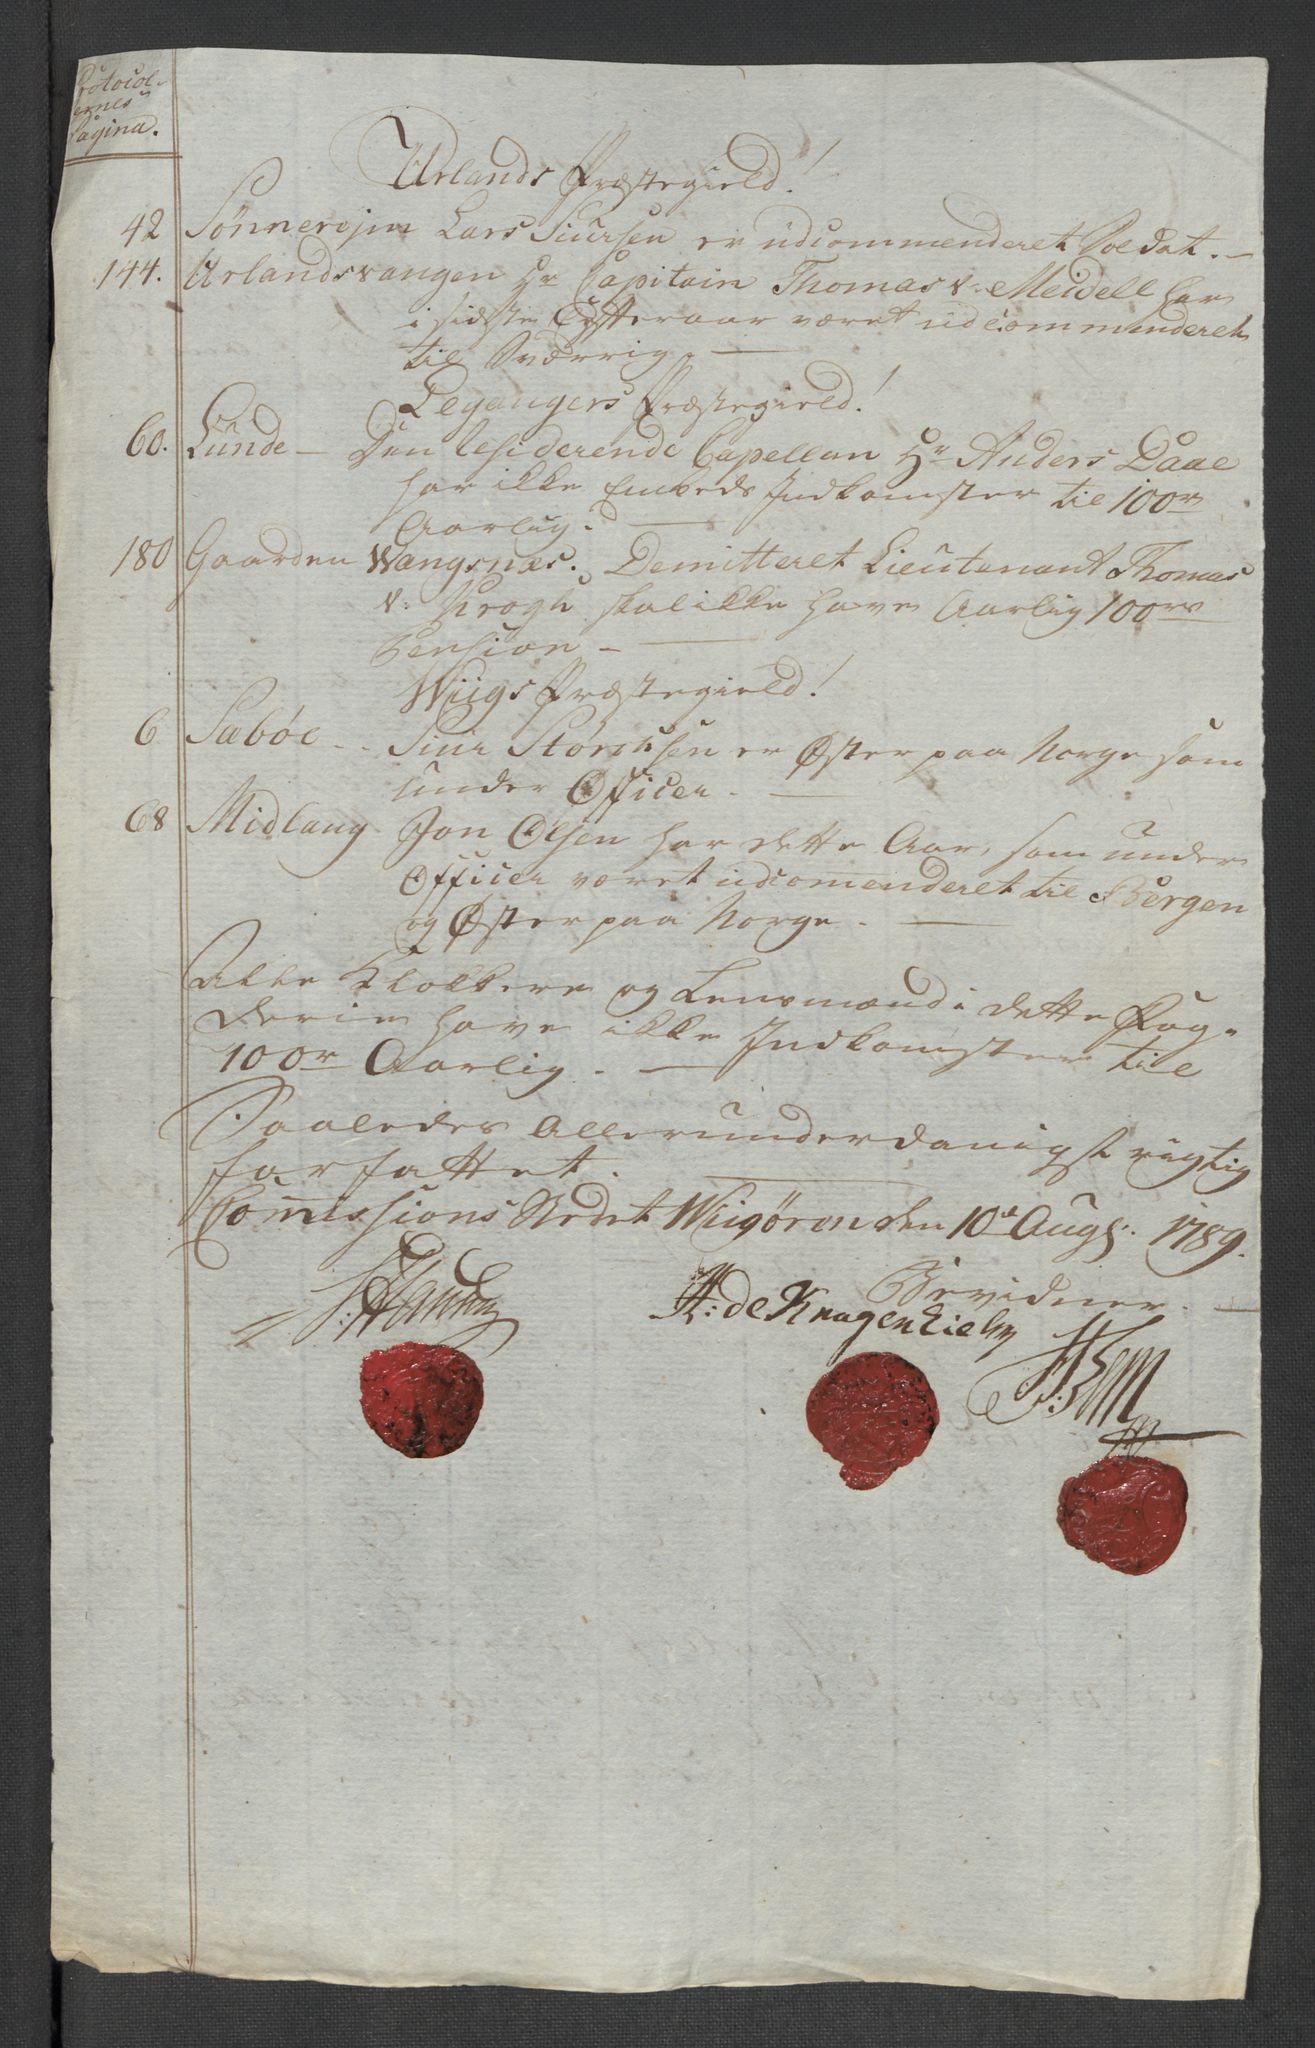 Protocol-
ernes
Pagina.
Urlands Præstegield!
42 Sønnerejm Lars Siursen er udcommenderet Soldat. -
144. Urlandsvangen Hr Capitain Thomas v: Meidell har
i sidste Efteraar været udcommenderet
til Sverrig. -
Leganger Præstegield!
60. Lunde - Den Residerende Capellan Hr Anders Daae
har ikke Embeds Indkomster til 100r
Aarlig. -
180 Gaarden Wangsnæs. Demitteret Lieutenant Thomas
v: Krogh skal ikke have Aarlig 100rs
Pension -
Wiigs Præstegield!
6 Sæbøe - - Siur Størchsen er Øster paa Norge som
under Officer. -
68 Midlang Jon Olsen har dette Aar, som under
Officer været udcomenderet til Bergen
og Øster paa Norge. -
Alle Klokkere og Lensmænd i dette Fog-
derie have ikke Indkomster til
100r Aarlig. -
Saaledes Allerunderdanigst rigtig
forfattet.
Comissions Stedet Wiigøren den 10de Augs: 1789.
Bevidner. -
A: de Knagenhielm